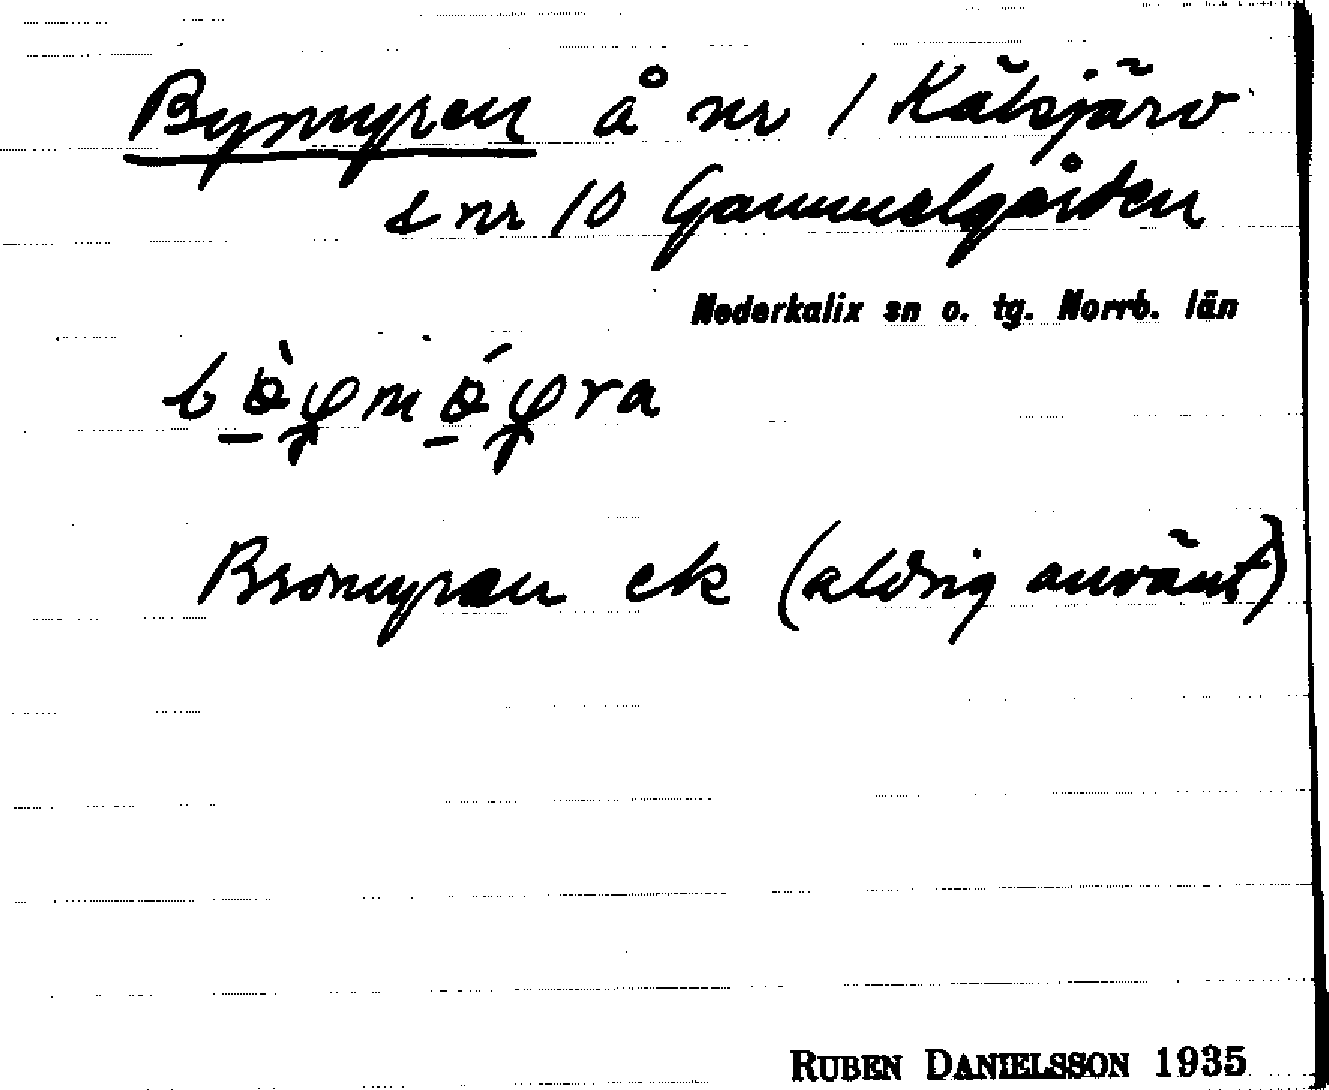 Bymyren å nr 1 Kälsjärv
& nr 10 Gammelgården
Nederkalix sn o. tg. Norrb. län
Bromyran ek (aldrig använt)
RUBEN DANIELSSON 1935